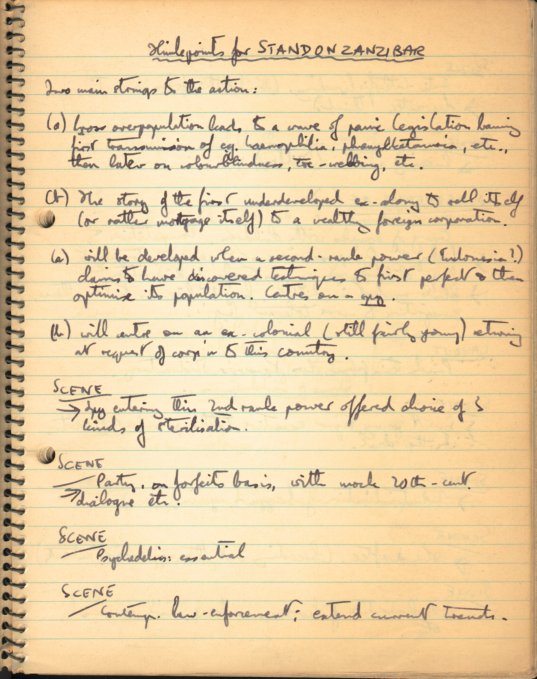 Hingepoints for STAND ON ZANZIBAR
Two main strings to the action:
(a) Gross overpopulation leads to a wave of panic legislation banning
first transmission of eg. haemophilia, phenylketonuria, etc.,
then later on colourblindness, toe-webbing, etc.
(b) The story of the first underdeveloped ex-colony to sell itself
(or rather mortgage itself) to a wealthy foreign corporation.
(a) will be developed when a second-rank power (Indonesia?)
claims to have discovered techniques to first perfect & then
optimise its population. Centres on a spy.
(b) will centre on an ex-colonial (still fairly young) returning
at request of corp'n to this country.
SCENE
Spy entering this 2nd rank power offered choice of 3
kinds of sterilisation.
SCENE
Party, on forfeits basis, with mock 20th-cent.
dialogue etc.
SCENE
Psychedelics: essential
SCENE
Contemp. law-enforcement: extend current trends.